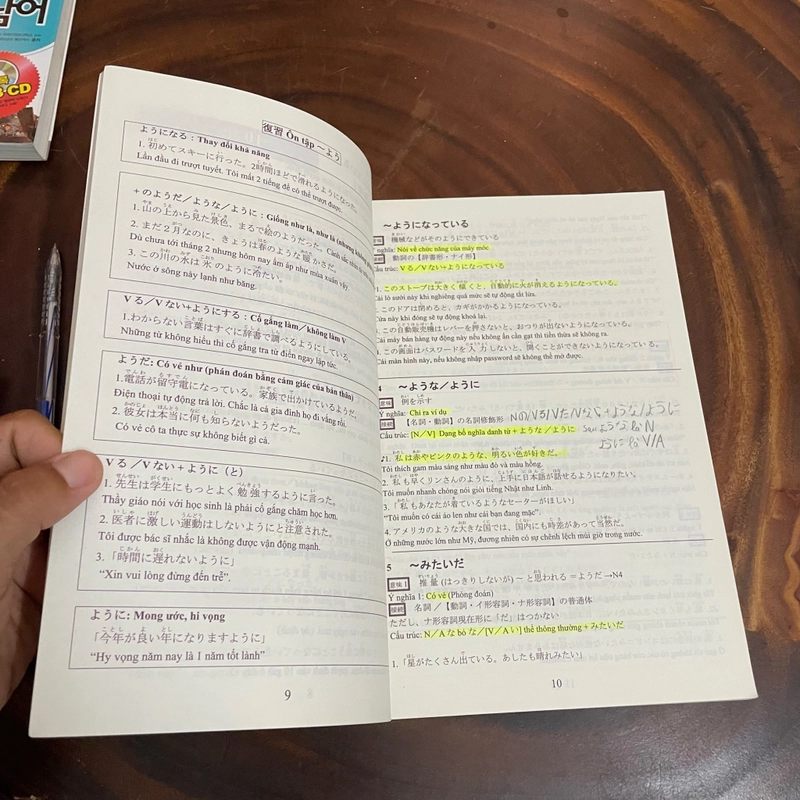 남어
CD
復習 Ôn tập ～よう
ようになる : Thay đổi khả năng
1. 初めてスキーに行った。2時間ほどで滑れるようになった。
Lần đầu đi trượt tuyết. Tôi mất 2 tiếng để có thể trượt được.
+ のようだ／ような／ように : Giống như là, như là (nhưng không
1.山の上から見た景色、まるで絵のようだった。Cảnh sắc nhìn từ
2. まだ２月なのに、きょうは春のような暖かさだ。
Dù chưa tới tháng 2 nhưng hôm nay ấm áp như mùa xuân vậy.
3. この川の水は氷のように冷たい。
Nước ở sông này lạnh như băng.
V る／V ない+ようにする : Cố gắng làm／không làm V
1.わからない言葉はすぐに辞書で調べるようにしている。
Những từ không hiểu thì cố gắng tra từ điển ngay lập tức.
ようだ: Có vẻ như (phán đoán bằng cảm giác của bản thân)
1.電話が留守電になっている。家族で出かけているようだ。
Điện thoại tự động trả lời. Chắc là cả gia đình họ đi vắng rồi.
2. 彼女は本当に何も知らないようだった。
Có vẻ cô ta thực sự không biết gì cả.
V る／V ない + ように（と）
1. 先生は学生にもっとよく勉強するように言った。
Thầy giáo nói với học sinh là phải cố gắng chăm học hơn.
2. 医者に激しい運動はしないようにと注意された。
Tôi được bác sĩ nhắc là không được vận động mạnh.
3. 「時間に遅れないように」
“Xin vui lòng đừng đến trễ”.
ように: Mong ước, hi vọng
「今年が良い年になりますように」
“Hy vọng năm nay là 1 năm tốt lành”
9
～ようになっている
意味 機械などがそのようにできている
nghĩa: Nói về chức năng của máy móc
接続 動詞の【辞書形・ナイ形】
Cấu trúc: V る／V ない+ようになっている
1. このストーブは大きく傾くと、自動的に火が消えるようになっている。
Cái lò sưởi này khi nghiêng quá mức sẽ tự động tắt lửa.
このドアは閉めると、カギがかかるようになっている。
Cửa này khi đóng sẽ tự động khoá lại.
この自動販売機はレバーを押さないと、おつりが出ないようになっている。
Cái máy bán hàng tự động này nếu không ấn cần gạt thì tiền thừa sẽ không ra.
4. この画面はパスワードを入力しないと、開くことができないようになっている。
Cái màn hình này, nếu không nhập password sẽ không thể mở được.
4 ～ような／ように
意味 例を示す
Ý nghĩa: Chỉ ra ví dụ
接続 【名詞・動詞】の名詞修飾形
Cấu trúc: [N／V] Dạng bổ nghĩa danh từ + ような／ように
1. 私は赤やピンクのような、明るい色が好きだ。
Tôi thích gam màu sáng như màu đỏ và màu hồng.
2. 私も早くリンさんのように、上手に日本語が話せるようになりたい。
Tôi muốn nhanh chóng nói giỏi tiếng Nhật như Linh.
3. 「私もあなたが着ているようなセーターがほしい」
“Tôi muốn có cái áo len như cái bạn đang mặc”.
4. アメリカのような大きな国では、国内にも時差があって当然だ。
Ở những nước lớn như Mỹ, đương nhiên có sự chênh lệch múi giờ trong nước.
5 ～みたいだ
意味1 推量 (はっきりしないが) ～と思われる =ようだ →N4
Ý nghĩa 1: Có vẻ (Phỏng đoán)
接続 名詞／【動詞・イ形容詞・ナ形容詞】の普通体
ただし、ナ形容詞現在形に「だ」はつかない
Cấu trúc: N／A な bỏ な／[V／A い] thể thông thường + みたいだ
1. 「星がたくさん出ている。あしたも晴れみたい」
10